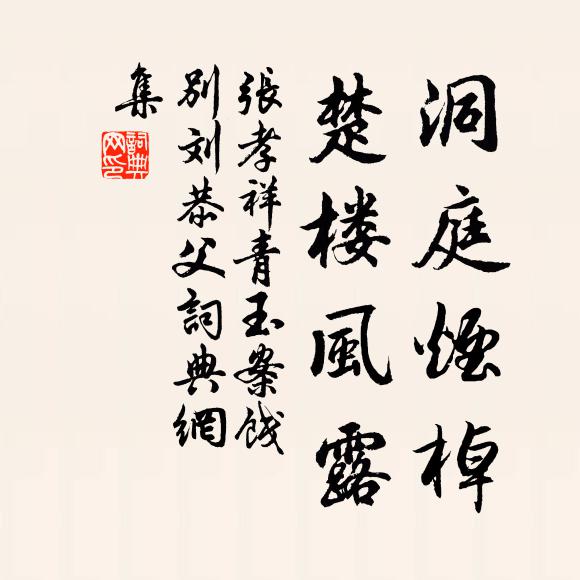 洞庭煙棹
楚楼風露
張孝祥青玉案餞
別刘恭父詞典網
集
詞典网印